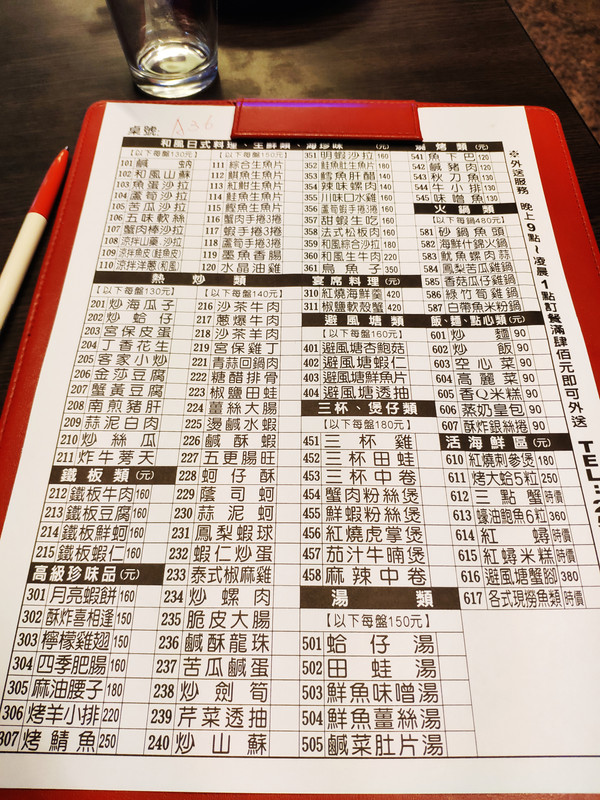 桌號: A36
和風日式料理、生鮮類、海珍味 (元)
[以下每盤130元]
101 鹹
102 和風山蘇
103 魚蛋沙拉
104 蘆筍沙拉
105 苦瓜沙拉
106 五味軟絲
107 蟹肉棒沙拉
108 涼拌山藥.沙拉
109 涼拌魚皮(鮭魚皮)
110 涼拌洋蔥(和風)
[以下每盤150元]
111 綜合生魚片
112 旗魚生魚片
113 紅魽生魚片
114 鮭魚生魚片
115 鮪魚生魚片
116 蟹肉手捲3捲
117 蝦手捲3捲
118 蘆筍手捲3捲
119 墨魚香腸
120 水晶油雞
351 明蝦沙拉 160
352 鮭魚肚生魚片 160
353 鱈魚肝醋 140
354 辣味螺肉 140
355 川味口水雞 160
356 蘆筍蝦手捲3捲 160
357 甜蝦生吃 160
358 法式松板肉 160
359 和風綜合沙拉 180
360 和風生牛肉 220
361 烏魚子 350
燒烤類 (元)
541 魚下巴 120
542 鹹豬肉 120
543 秋刀魚 130
544 牛小排 130
545 味噌魚 130
火鍋類
(以下每鍋480元)
581 砂鍋魚頭
582 海鮮什錦火鍋
583 魷魚螺肉蒜
584 鳳梨苦瓜雞鍋
585 香菇瓜仔雞鍋
586 綠竹筍雞鍋
587 白帶魚米粉鍋
熱炒類
[以下每盤130元]
201 炒海瓜子
202 炒蛤仔
203 宮保皮蛋
204 丁香花生
205 客家小炒
206 金莎豆腐
207 蟹黃豆腐
208 南煎豬肝
209 蒜泥白肉
210 炒絲瓜
211 炸牛蒡天
[以下每盤140元]
216 沙茶牛肉
217 蔥爆牛肉
218 沙茶羊肉
219 宮保雞丁
221 青蒜回鍋肉
222 糖醋排骨
223 椒鹽田蛙
224 薑絲大腸
225 燙鹹水蝦
226 鹹酥蝦
227 五更腸旺
228 蚵仔酥
229 蔭司蚵
230 蒜泥蚵
231 鳳梨蝦球
232 蝦仁炒蛋
233 泰式椒麻雞
234 炒螺肉
235 脆皮大腸
236 鹹酥龍珠
237 苦瓜鹹蛋
238 炒劍筍
239 芹菜透抽
240 炒山蘇
鐵板類 (元)
212 鐵板牛肉 160
213 鐵板豆腐 160
214 鐵板鮮蚵 160
215 鐵板蝦仁 160
高級珍味品 (元)
301 月亮蝦餅 160
302 酥炸喜相逢 150
303 檸檬雞翅 150
304 四季肥腸 160
305 麻油腰子 180
306 烤羊小排 220
307 烤鯖魚 250
宴席料理 (元)
310 紅燒海鮮羹 420
311 椒鹽軟殼蟹 420
避風塘類
[以下每盤160元]
401 避風塘杏鮑菇
402 避風塘蝦仁
403 避風塘鮮魚片
404 避風塘透抽
三杯、煲仔類
[以下每盤180元]
451 三杯雞
452 三杯田蛙
453 三杯中卷
454 蟹肉粉絲煲
455 鮮蝦粉絲煲
456 紅燒虎掌煲
457 茄汁牛腩煲
458 麻辣中卷
湯類
[以下每盤150元]
501 蛤仔湯
502 田蛙湯
503 鮮魚味噌湯
504 鮮魚薑絲湯
505 鹹菜肚片湯
飯、麵、點心類 (元)
601 炒麵 90
602 炒飯 90
603 空心菜 90
604 高麗菜 90
605 香Q米糕 90
606 蒸奶皇包 90
607 酥炸銀絲捲 90
活海鮮區 (元)
610 紅燒刺參煲 180
611 烤大蛤5粒 250
612 三點蟹 時價
613 蠔油鮑魚6粒 360
614 紅蟳 時價
615 紅蟳米糕 時價
616 避風塘蟹腳 380
617 各式現撈魚類 時價
※外送服務 晚上9點~凌晨1點訂餐滿肆佰元即可外送 TEL: